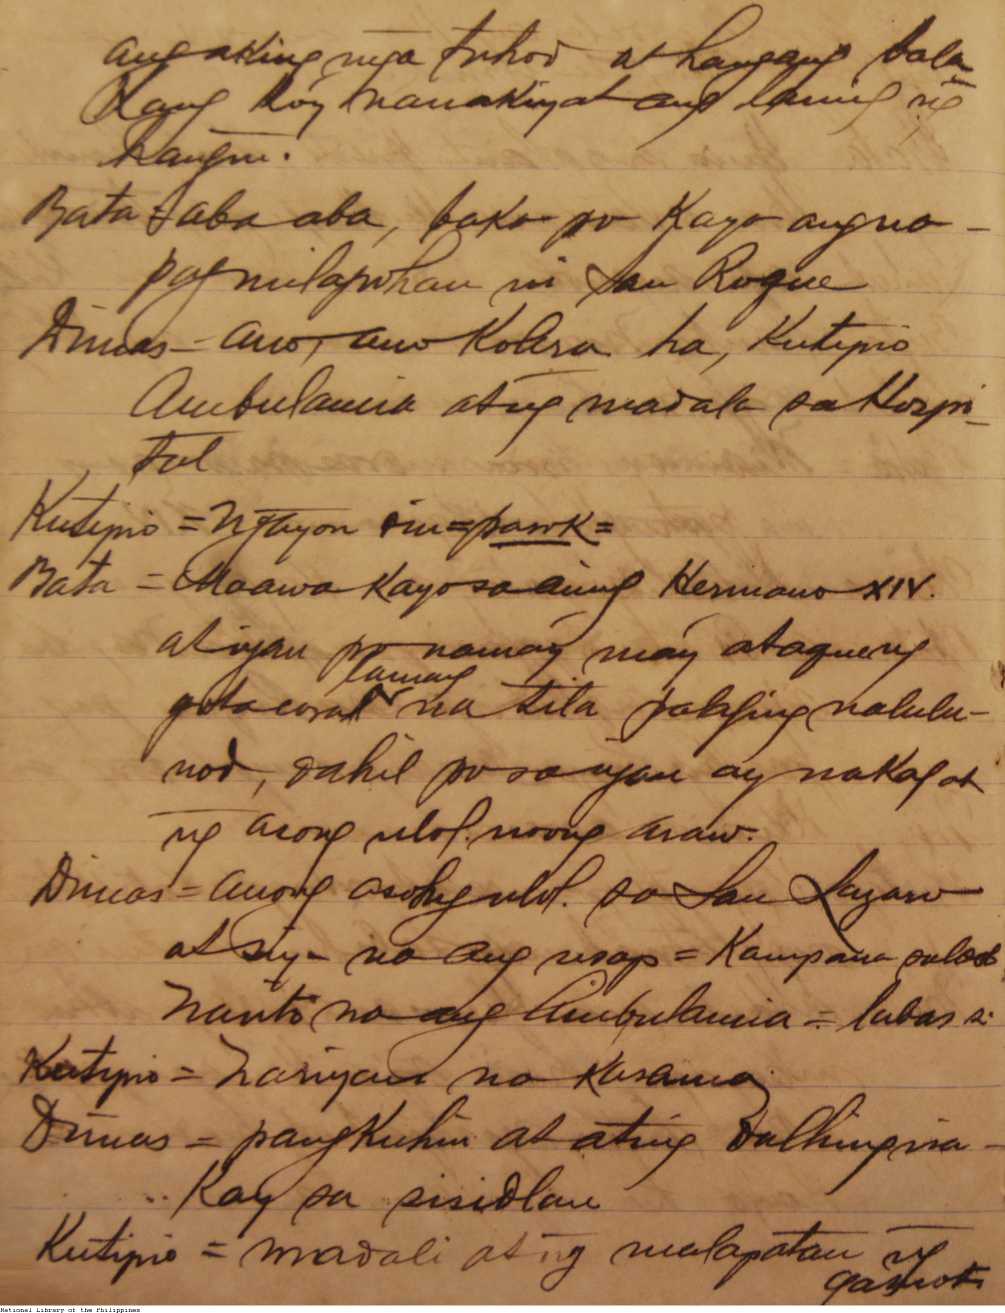 ang aking mga tuhod at hangang bala
kang koy nanakiyat ang lamig ng
hangin.
Bata = aba aba, baka po kayo ang na-
pagmilagrohan ni San Roque
Dimas - ano, ano kolera ha, Kutipio
Ambulancia at ng madala sa Hospi-
tal
Kutipio = Ngayon din = pasok =
Bata = Maawa kayo sa aming Hermano XIV.
at iyan po namáy máy ataque ng
lamang
gota coral na tila pating nalulu-
nod, dahil po sa iyan ay nakagat
ng asong ulol noong araw.
Dimas = anong asong ulol. sa San Lazaro
at siya na ang usap = Kampana
Narito na ang Ambulancia = labas si
Kutipio = Nariyan na kasama
Dimas = pangkuhin at ating dalhing na-
kay sa sisidlan
Kutipio = madali at ng malapatan ng
gamot
National Library of the Philippines